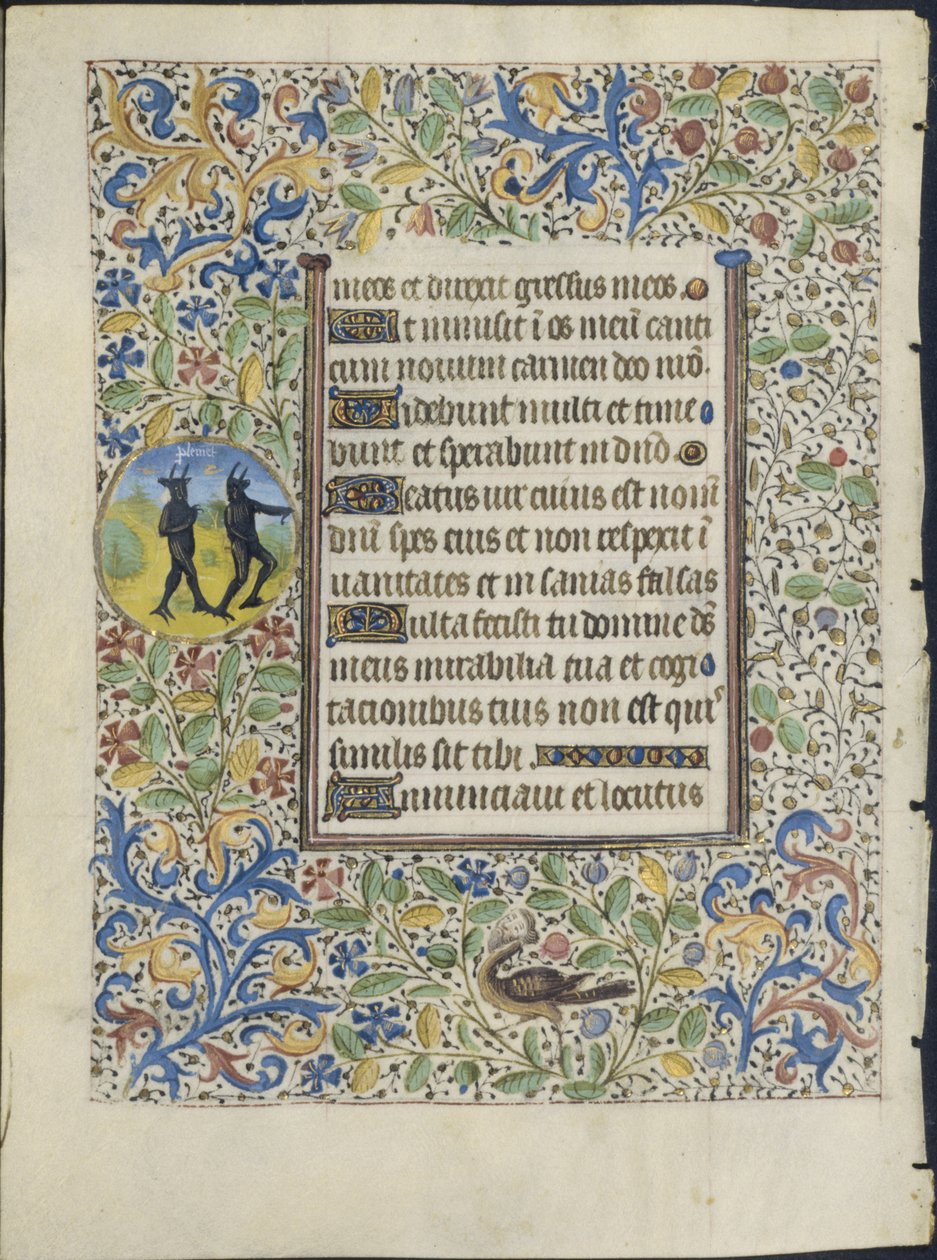 plemet
meos et direxit gressus meos.
Et inmisit ī os meū canti
cum nouum carmen deo nr̄o.
Uidebunt multi et time
bunt et sperabunt in dn̄o.
Beatus uir cuius est nom̄
dn̄i spes eius et non respexit ī
uanitates et in sanias falsas
Multa fecisti tu domine ds̄
meus mirabilia tua et cogi
tacionibus tuis non est qui
similis sit tibi.
Annunciaui et locutus